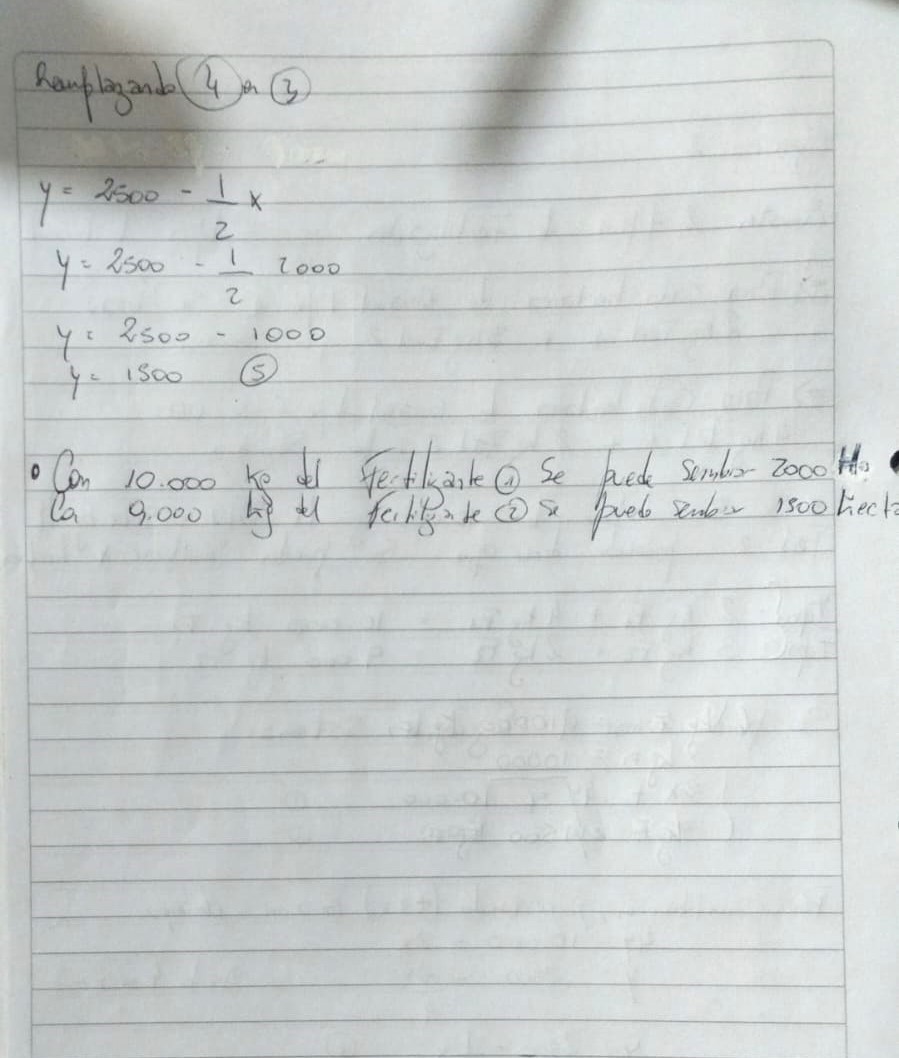 Remplazando 4 en 3
y = 2500 - 1/2 x
y = 2500 - 1/2 2000
y = 2500 - 1000
y = 1500 5
Con 10.000 kg del Fertilizante 1 Se puede Sembrar 2000 Ha
Con 9.000 kg del fertilizante 2 se puede sembrar 1500 hecta